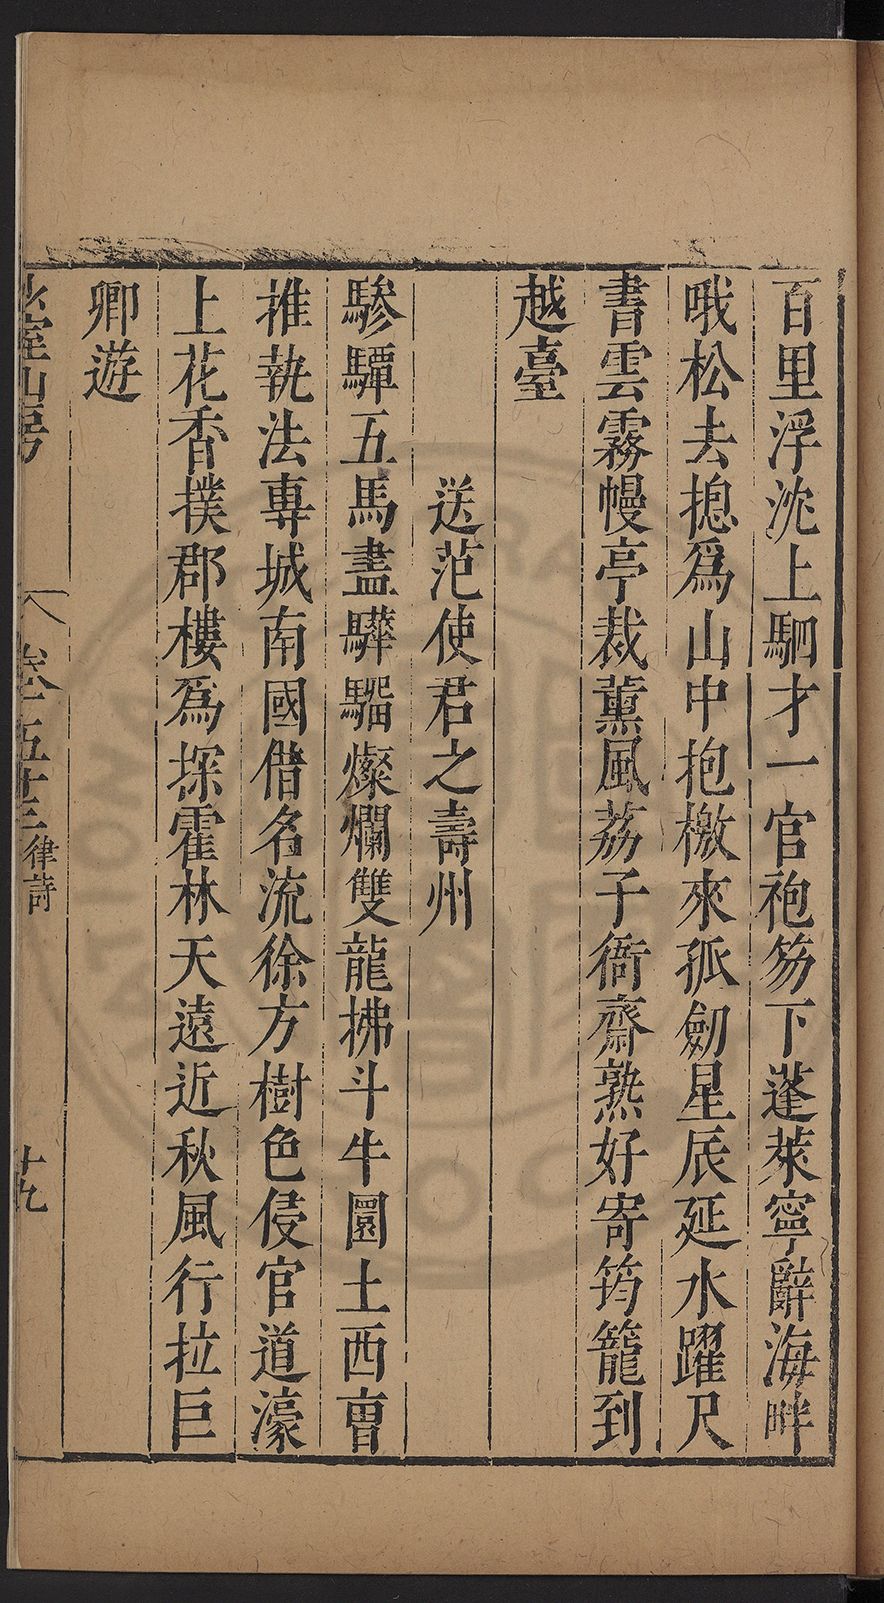 百里浮沈上駟才一官袍笏下蓬萊寧辭海畔
哦松去摠爲山中抱檄來孤劒星辰延水躍尺
書雲霧幔亭裁薰風荔子衙齋熟好寄筠籠到
越臺
送范使君之壽州
驂驔五馬盡驊騮燦爛雙龍拂斗牛圜土西曹
推執法專城南國借名流徐方樹色侵官道濠
上花香撲郡樓爲探霍林天遠近秋風行拉巨
卿遊
室山房
卷五十三律詩
十九